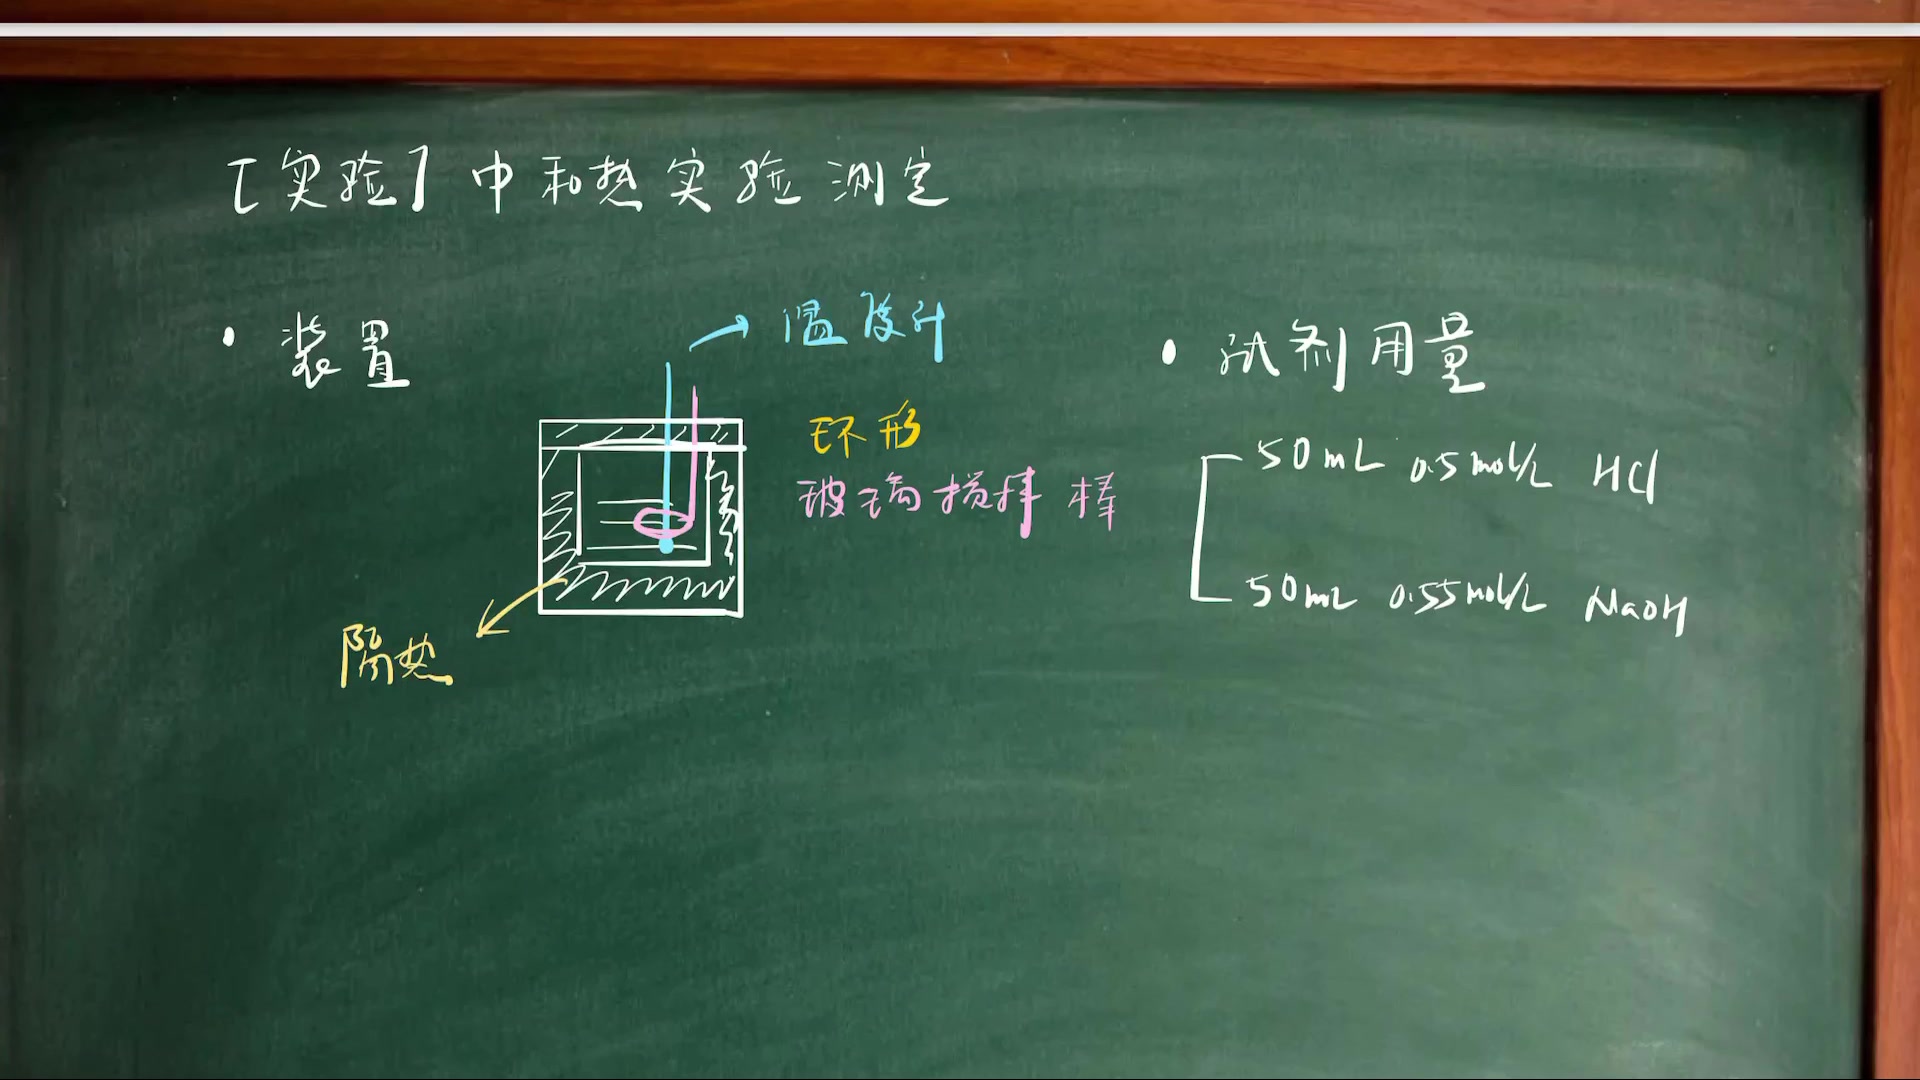 [实验] 中和热实验测定
• 装置
温度计
环形
玻璃搅拌棒
隔热
• 试剂用量
50mL 0.5mol/L HCl
50mL 0.55mol/L NaOH